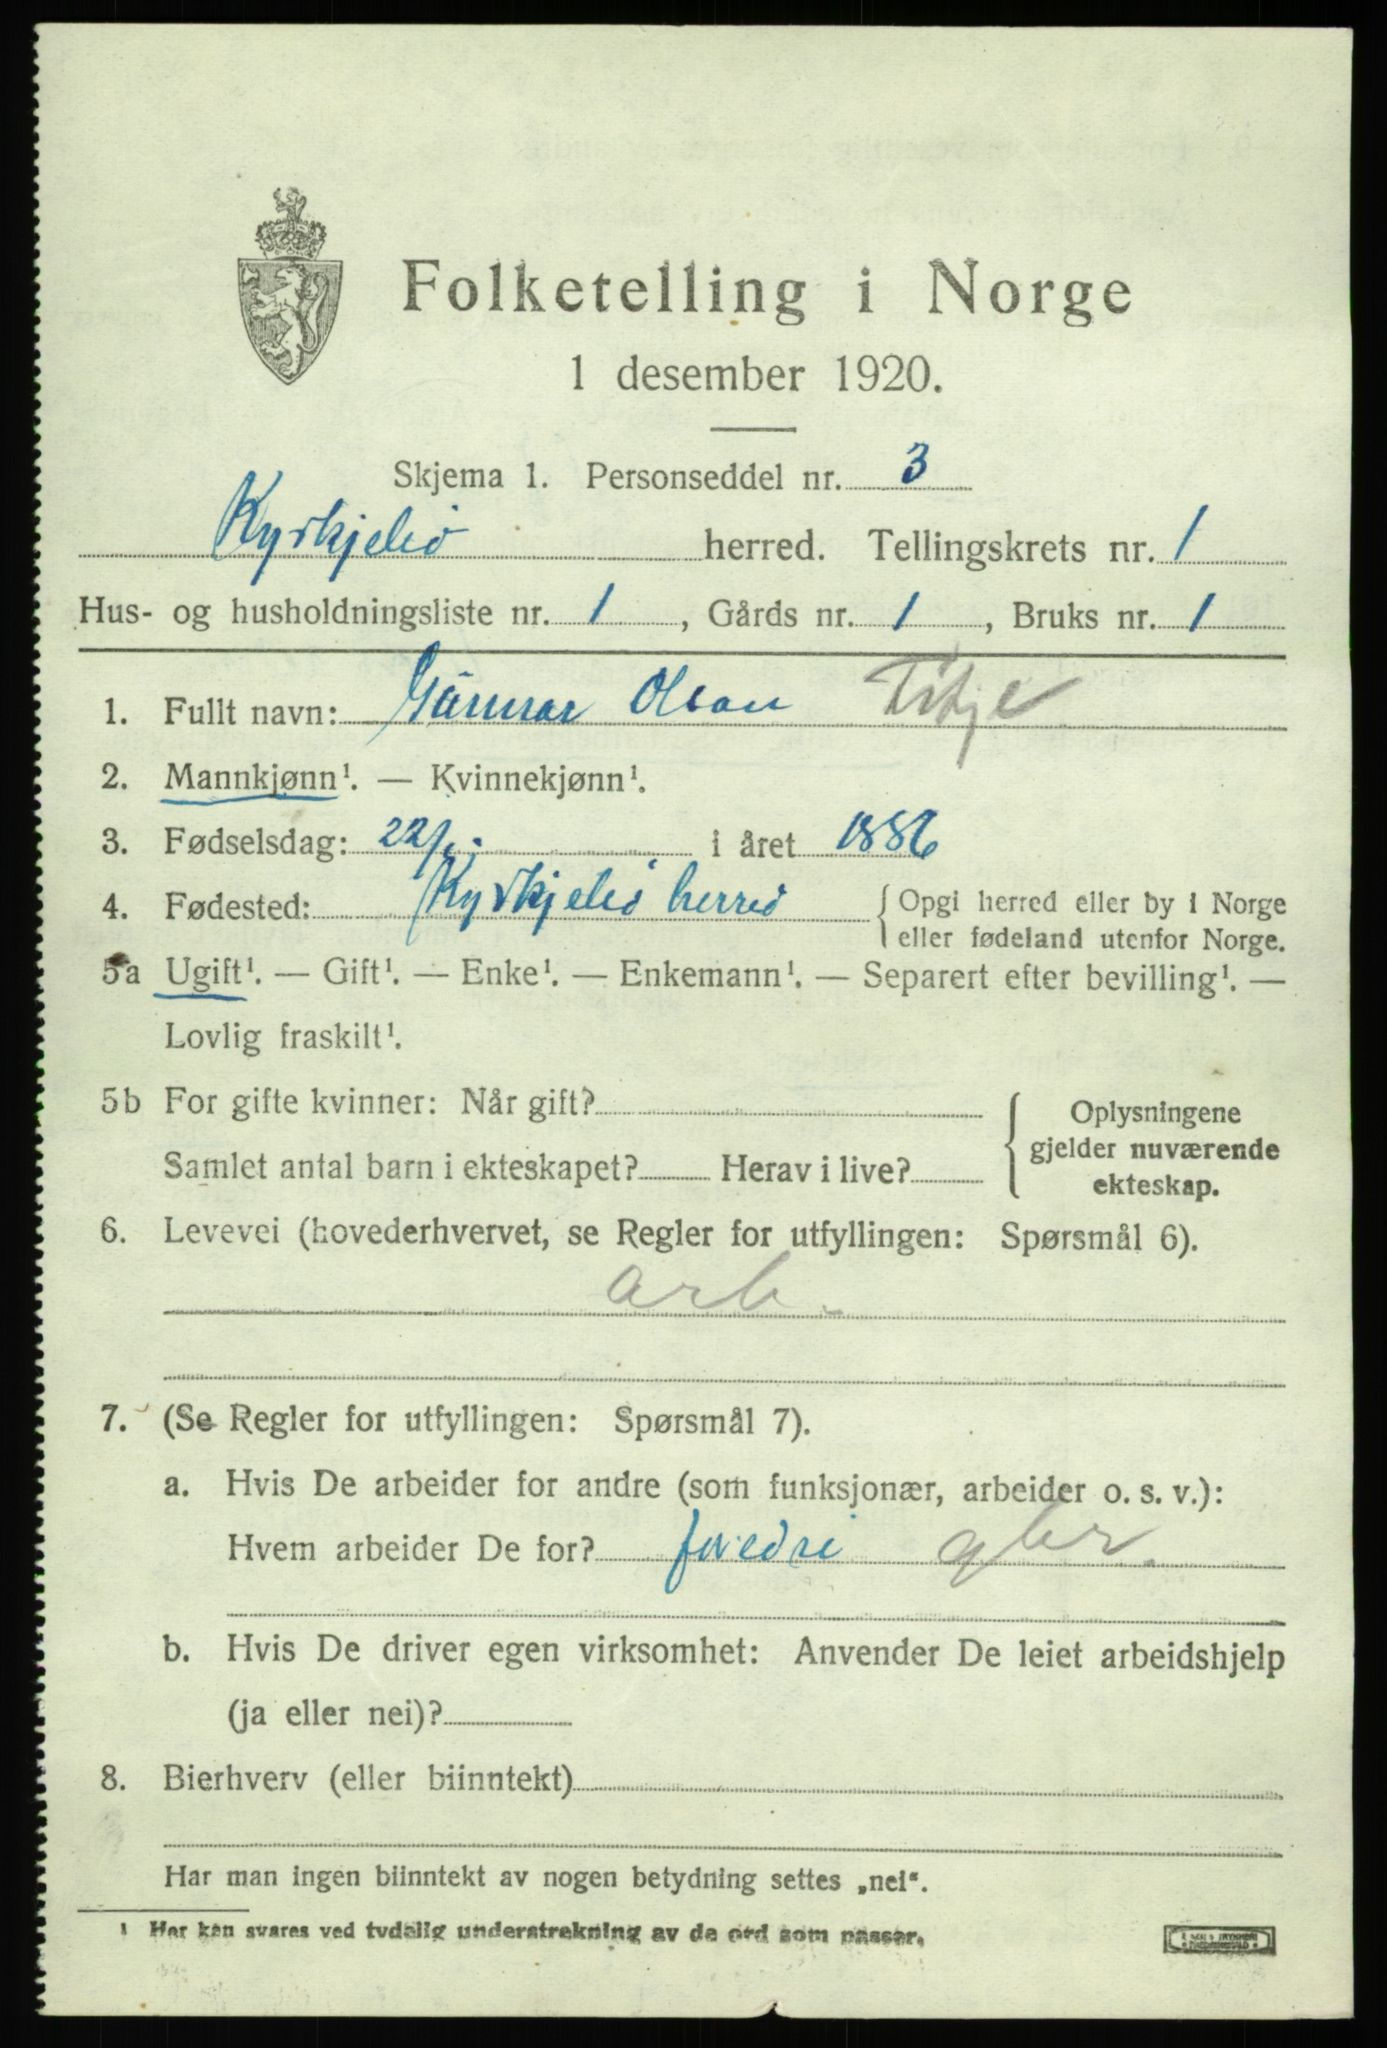 Folketelling i Norge
1 desember 1920.
Skjema 1. Personseddel nr. 3
Kyrkjebø herred. Tellingskrets nr. 1
Hus- og husholdningsliste nr. 1, Gårds nr. 1, Bruks nr. 1
1. Fullt navn: Gunnar Olsen
2. Mannkjønn¹. — Kvinnekjønn¹.
3. Fødselsdag: 22/1. i året 1886
4. Fødested: Kyrkjebø herred { Opgi herred eller by i Norge
eller fødeland utenfor Norge.
5a Ugift¹. — Gift¹. — Enke¹. — Enkemann¹. — Separert efter bevilling¹. —
Lovlig fraskilt¹.
5b For gifte kvinner: Når gift?
Samlet antal barn i ekteskapet? Herav i live?
{ Oplysningene
gjelder nuværende
ekteskap.
6. Levevei (hovederhvervet, se Regler for utfyllingen: Spørsmål 6).
arb.
7. (Se Regler for utfyllingen: Spørsmål 7).
a. Hvis De arbeider for andre (som funksjonær, arbeider o. s. v.):
Hvem arbeider De for? foredre gbr.
b. Hvis De driver egen virksomhet: Anvender De leiet arbeidshjelp
(ja eller nei)?
8. Bierhverv (eller biinntekt)
Har man ingen biinntekt av nogen betydning settes „nei“.
¹ Her kan svares ved tydelig understrekning av de ord som passer.